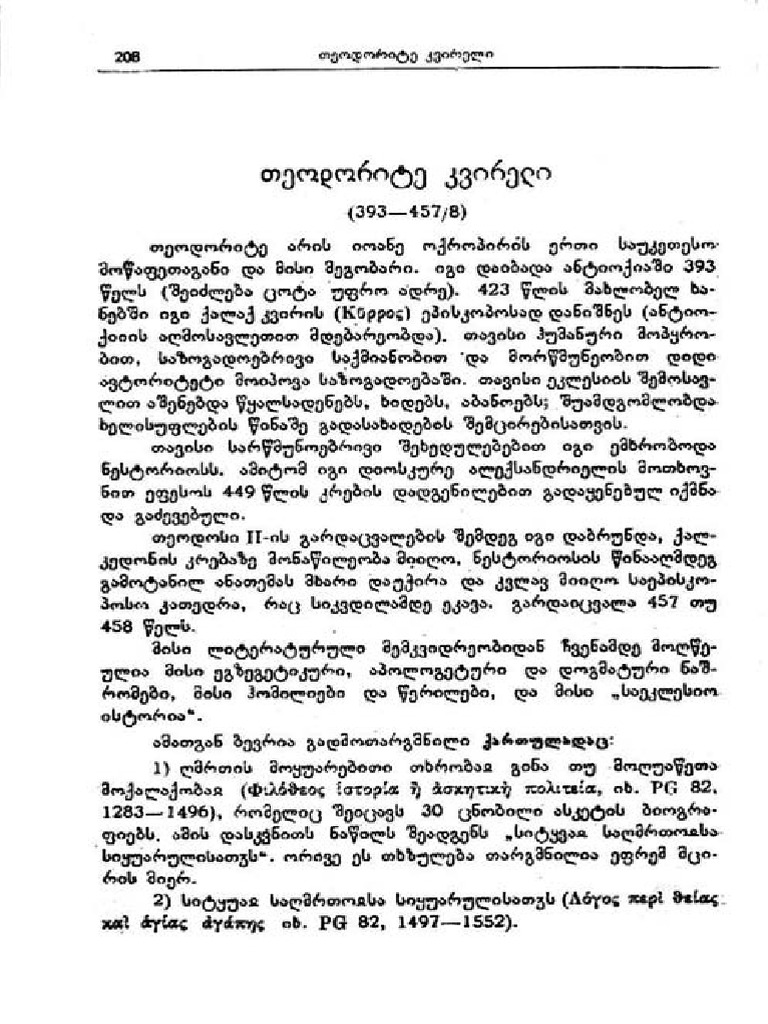 208 თეოდორიტე კვირელი
თეოდორიტე კვირელი
(393—457/8)
თეოდორიტე არის იოანე ოქროპირის ერთი საუკეთესო
მოწაფეთაგანი და მისი მეგობარი. იგი დაიბადა ანტიოქიაში 393
წელს (შეიძლება ცოტა უფრო ადრე). 423 წლის მახლობელ ხა-
ნებში იგი ქალაქ კვირის (Κῦρρος) ეპისკოპოსად დანიშნეს (ანტიო-
ქიიის აღმოსავლეთით მდებარეობდა). თავისი ჰუმანური მოპყრო-
ბით, საზოგადოებრივი საქმიანობით და მორწმუნეობით დიდი
ავტორიტეტი მოიპოვა საზოგადოებაში. თავისი ეკლესიის შემოსავ-
ლით აშენებდა წყალსადენებს, ხიდებს, აბანოებს; შუამდგომლობდა
ხელისუფლების წინაშე გადასახადების შემცირებისათვის.
თავისი სარწმუნოებრივი შეხედულებებით იგი ემხრობოდა
ნესტორიოსს. ამიტომ იგი დიოსკურე ალექსანდრიელის მოთხოვ-
ნით ეფესოს 449 წლის კრების დადგენილებით გადაყენებულ იქმნა
და გაძევებული.
თეოდოსი II-ის გარდაცვალების შემდეგ იგი დაბრუნდა, ქალ-
კედონის კრებაზე მონაწილეობა მიიღო, ნესტორიოსის წინააღმდეგ
გამოტანილ ანათემას მხარი დაუჭირა და კვლავ მიიღო საეპისკო-
პოსო კათედრა, რაც სიკვდილამდე ეკავა. გარდაიცვალა 457 თუ
458 წელს.
მისი ლიტერატურული მემკვიდრეობიდან ჩვენამდე მოღწე-
ულია მისი ეგზეგეტიკური, აპოლოგეტური და დოგმატური ნაშ-
რომები, მისი ჰომილიები და წერილები, და მისი „საეკლესიო
ისტორია“.
ამათგან ბევრია გადმოთარგმნილი ქართულადაც:
1) ღმრთის მოყუარებითი თხრობაჲ გინა თუ მოღუაწეთა
მოქალაქობაჲ (Φιλόθεος ἱστορία ἢ ἀσκητικὴ πολιτεία, იხ. PG 82,
1283—1496), რომელიც შეიცავს 30 ცნობილი ასკეტის ბიოგრა-
ფიებს. ამის დასკვნითს ნაწილს შეადგენს „სიტყვაჲ საღმრთოჲსა
სიყუარულისათჳს“. ორივე ეს თხზულება თარგმნილია ეფრემ მცი-
რის მიერ.
2) სიტყუაჲ საღმრთოჲსა სიყუარულისათჳს (Λόγος περὶ θείας
καὶ ἁγίας ἀγάπης იხ. PG 82, 1497—1552).